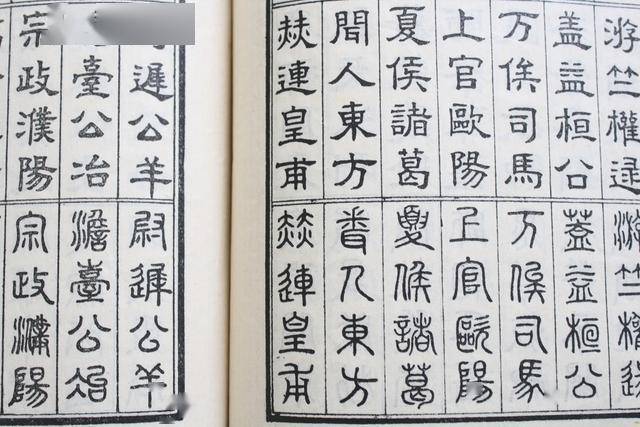 游竺權逯
蓋益桓公
万俟司馬
上官歐陽
夏侯諸葛
聞人東方
赫連皇甫
游竺權逯
蓋益桓公
万俟司馬
上官歐陽
夏侯諸葛
聞人東方
赫連皇甫
遲公羊
臺公冶
宗政濮陽
尉遲公羊
澹臺公冶
宗政濮陽